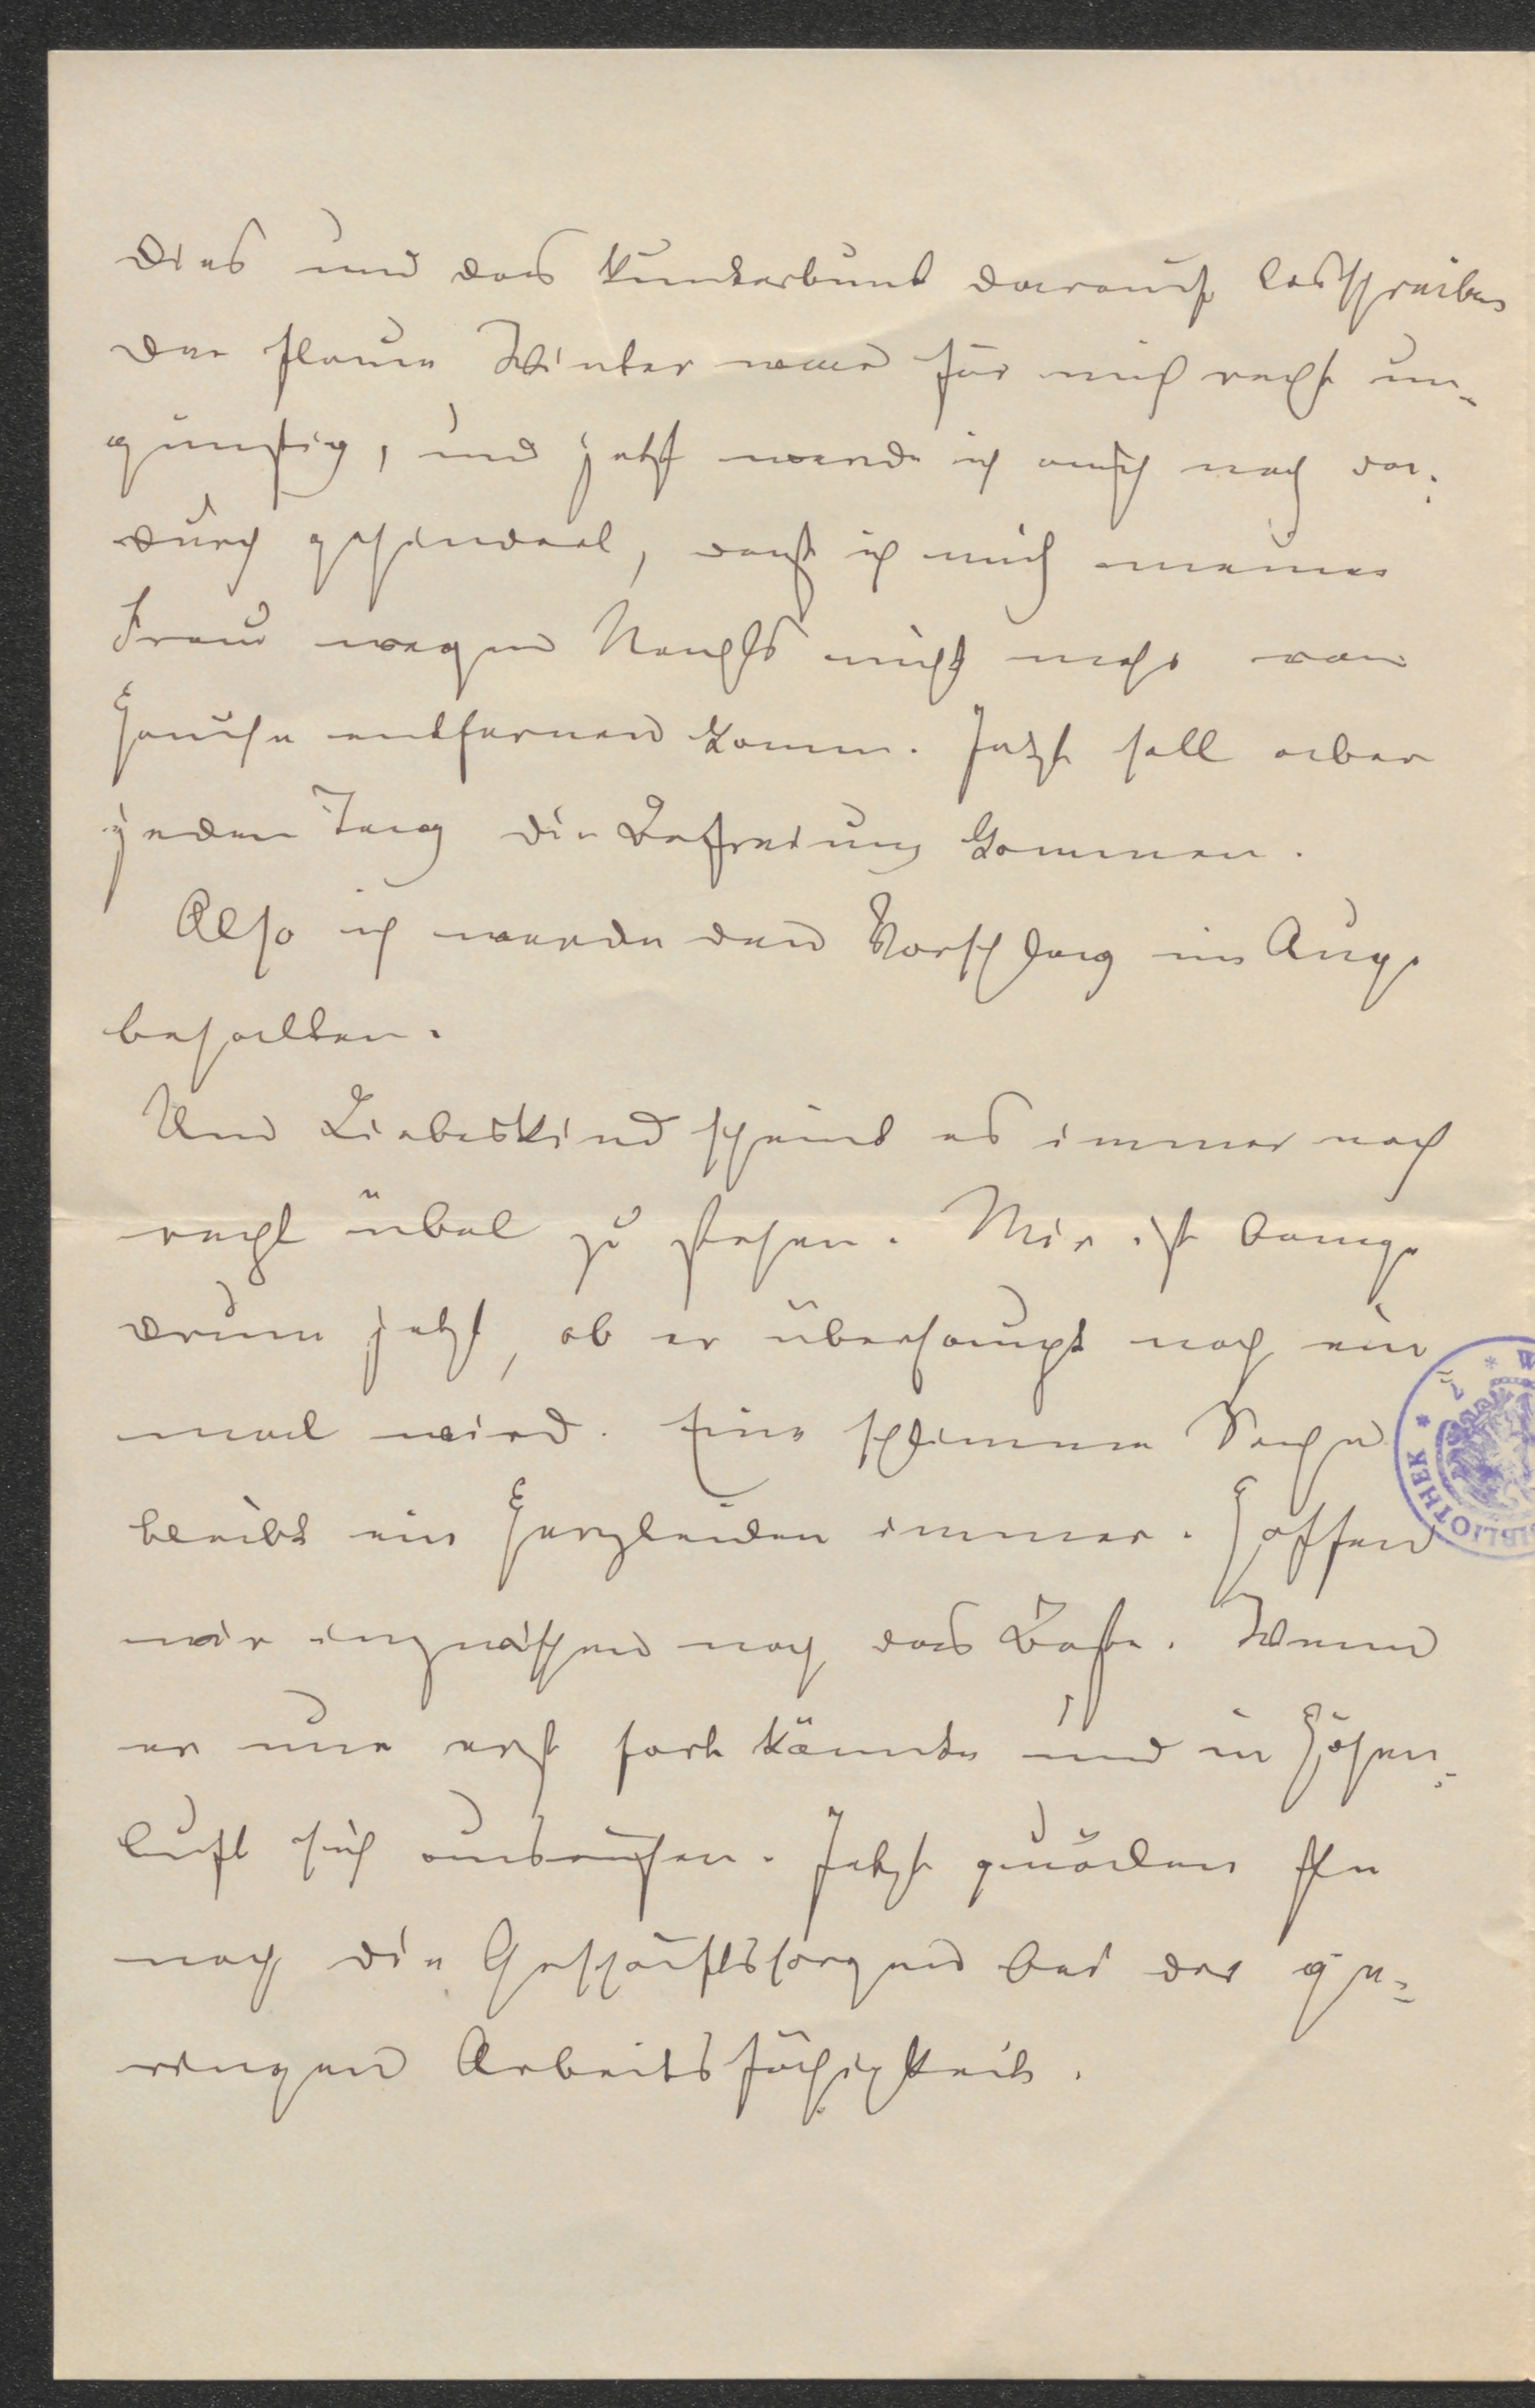 dies und das kunterbunt darauf losschreiben
Der flaue Winter war für mich recht un-
günstig, und jetzt werde ich auch noch da-
durch gehindert, daß ich mich meiner
Frau wegen Nachts nicht mehr von
Hause entfernen kann. Jetzt soll aber
jeden Tag die Befreiung kommen.
Also ich werde den Vorschlag im Auge
behalten.
Um Liebeskind scheint es immer noch
recht übel zu stehen. Mir ist bange
drum jetzt, ob er überhaupt noch ein
mal wird. Eine schlimme Sache
bleibt ein Herzleiden immer. Hoffen
wir inzwischen noch das Beste. Wenn
er nur erst fort könnte und in Höhen-
luft sich ausruhen. Jetzt quälen ihn
noch die Geschäftssorgen bei der ge-
ringen Arbeitsfähigkeit.
BIBLIOTHEK * * W